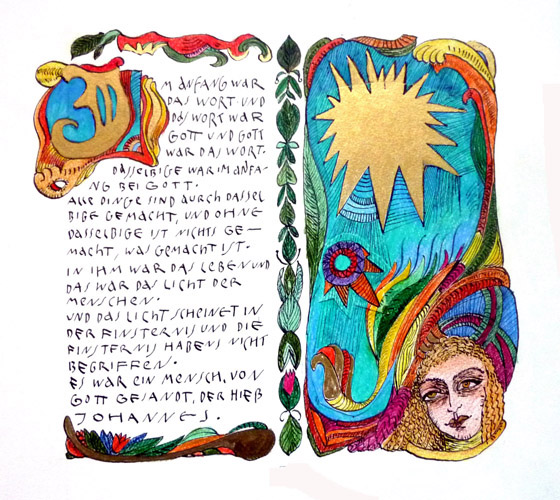 M ANFANG WAR
DAS WORT UND
DAS WORT WAR
GOTT UND GOTT
WAR DAS WORT.
DASSELBIGE WAR IM ANFA-
NG BEI GOTT.
ALLE DINGE SIND DURCH DASSEL
BIGE GEMACHT, UND OHNE
DASSELBIGE IST NICHTS GE-
MACHT, WAS GEMACHT IST.
IN IHM WAR DAS LEBEN UND
DAS WAR DAS LICHT DER
MENSCHEN.
UND DAS LICHT SCHEINET IN
DER FINSTERNIS UND DIE
FINSTERNIS HABENS NICHT
BEGRIFFEN.
ES WAR EIN MENSCH, VON
GOTT GESANDT, DER HIEß
JOHANNES.